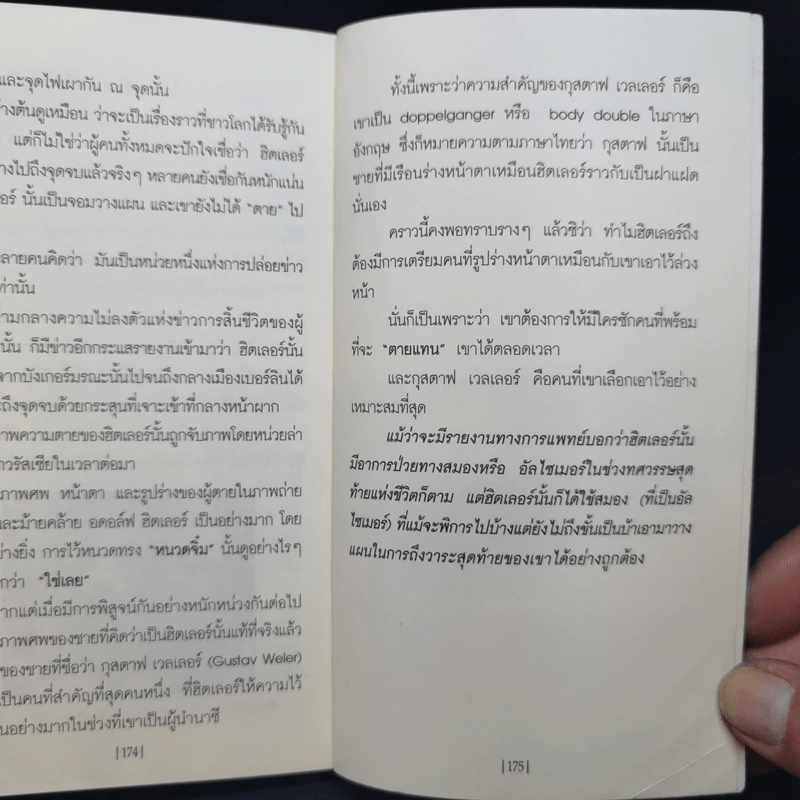 และจุดไฟเผากัน ณ จุดนั้น
างต้นดูเหมือน ว่าจะเป็นเรื่องราวที่ชาวโลกได้รับรู้กัน
แต่ก็ไม่ใช่ว่าผู้คนทั้งหมดจะปักใจเชื่อว่า ฮิตเลอร์
างไปถึงจุดจบแล้วจริงๆ หลายคนยังเชื่อกันหนักแน่น
อร์ นั้นเป็นจอมวางแผน และเขายังไม่ได้ "ตาย" ไป
ลายคนคิดว่า มันเป็นหน่วยหนึ่งแห่งการปล่อยข่าว
ท่านั้น
ามกลางความไม่ลงตัวแห่งข่าวการสิ้นชีวิตของผู้
นั้น ก็มีข่าวอีกกระแสรายงานเข้ามาว่า ฮิตเลอร์นั้น
จากบังเกอร์มรณะนั้นไปจนถึงกลางเมืองเบอร์ลินได้
ะถึงจุดจบด้วยกระสุนที่เจาะเข้าที่กลางหน้าผาก
ภาพความตายของฮิตเลอร์นั้นถูกจับภาพโดยหน่วยล่า
าวรัสเซียในเวลาต่อมา
ภาพศพ หน้าตา และรูปร่างของผู้ตายในภาพถ่าย
และม้ายคล้าย อดอล์ฟ ฮิตเลอร์ เป็นอย่างมาก โดย
ย่างยิ่ง การไว้หนวดทรง "หนวดจิ๋ม" นั้นดูอย่างไรๆ
กว่า "ใช่เลย"
ากแต่เมื่อมีการพิสูจน์กันอย่างหนักหน่วงกันต่อไป
ภาพศพของชายที่คิดว่าเป็นฮิตเลอร์นั้นแท้ที่จริงแล้ว
ของชายที่ชื่อว่า กุสตาฟ เวลเลอร์ (Gustav Weler)
เป็นคนที่สำคัญที่สุดคนหนึ่ง ที่ฮิตเลอร์ให้ความไว้
นอย่างมากในช่วงที่เขาเป็นผู้นำนาซี
|174|
ทั้งนี้เพราะว่าความสำคัญของกุสตาฟ เวลเลอร์ ก็คือ
เขาเป็น doppelganger หรือ body double ในภาษา
อังกฤษ ซึ่งก็หมายความตามภาษาไทยว่า กุสตาฟ นั้นเป็น
ชายที่มีเรือนร่างหน้าตาเหมือนฮิตเลอร์ราวกับเป็นฝาแฝด
นั่นเอง
คราวนี้คงพอทราบรางๆ แล้วซิว่า ทำไมฮิตเลอร์ถึง
ต้องมีการเตรียมคนที่รูปร่างหน้าตาเหมือนกับเขาเอาไว้ล่วง
หน้า
นั่นก็เป็นเพราะว่า เขาต้องการให้มีใครซักคนที่พร้อม
ที่จะ "ตายแทน" เขาได้ตลอดเวลา
และกุสตาฟ เวลเลอร์ คือคนที่เขาเลือกเอาไว้อย่าง
เหมาะสมที่สุด
แม้ว่าจะมีรายงานทางการแพทย์บอกว่าฮิตเลอร์นั้น
มีอาการป่วยทางสมองหรือ อัลไซเมอร์ในช่วงทศวรรษสุด
ท้ายแห่งชีวิตก็ตาม แต่ฮิตเลอร์นั้นก็ได้ใช้สมอง (ที่เป็นอัล
ไซเมอร์) ที่แม้จะพิการไปบ้างแต่ยังไม่ถึงขั้นเป็นบ้าเอามาวาง
แผนในการถึงวาระสุดท้ายของเขาได้อย่างถูกต้อง
|175|